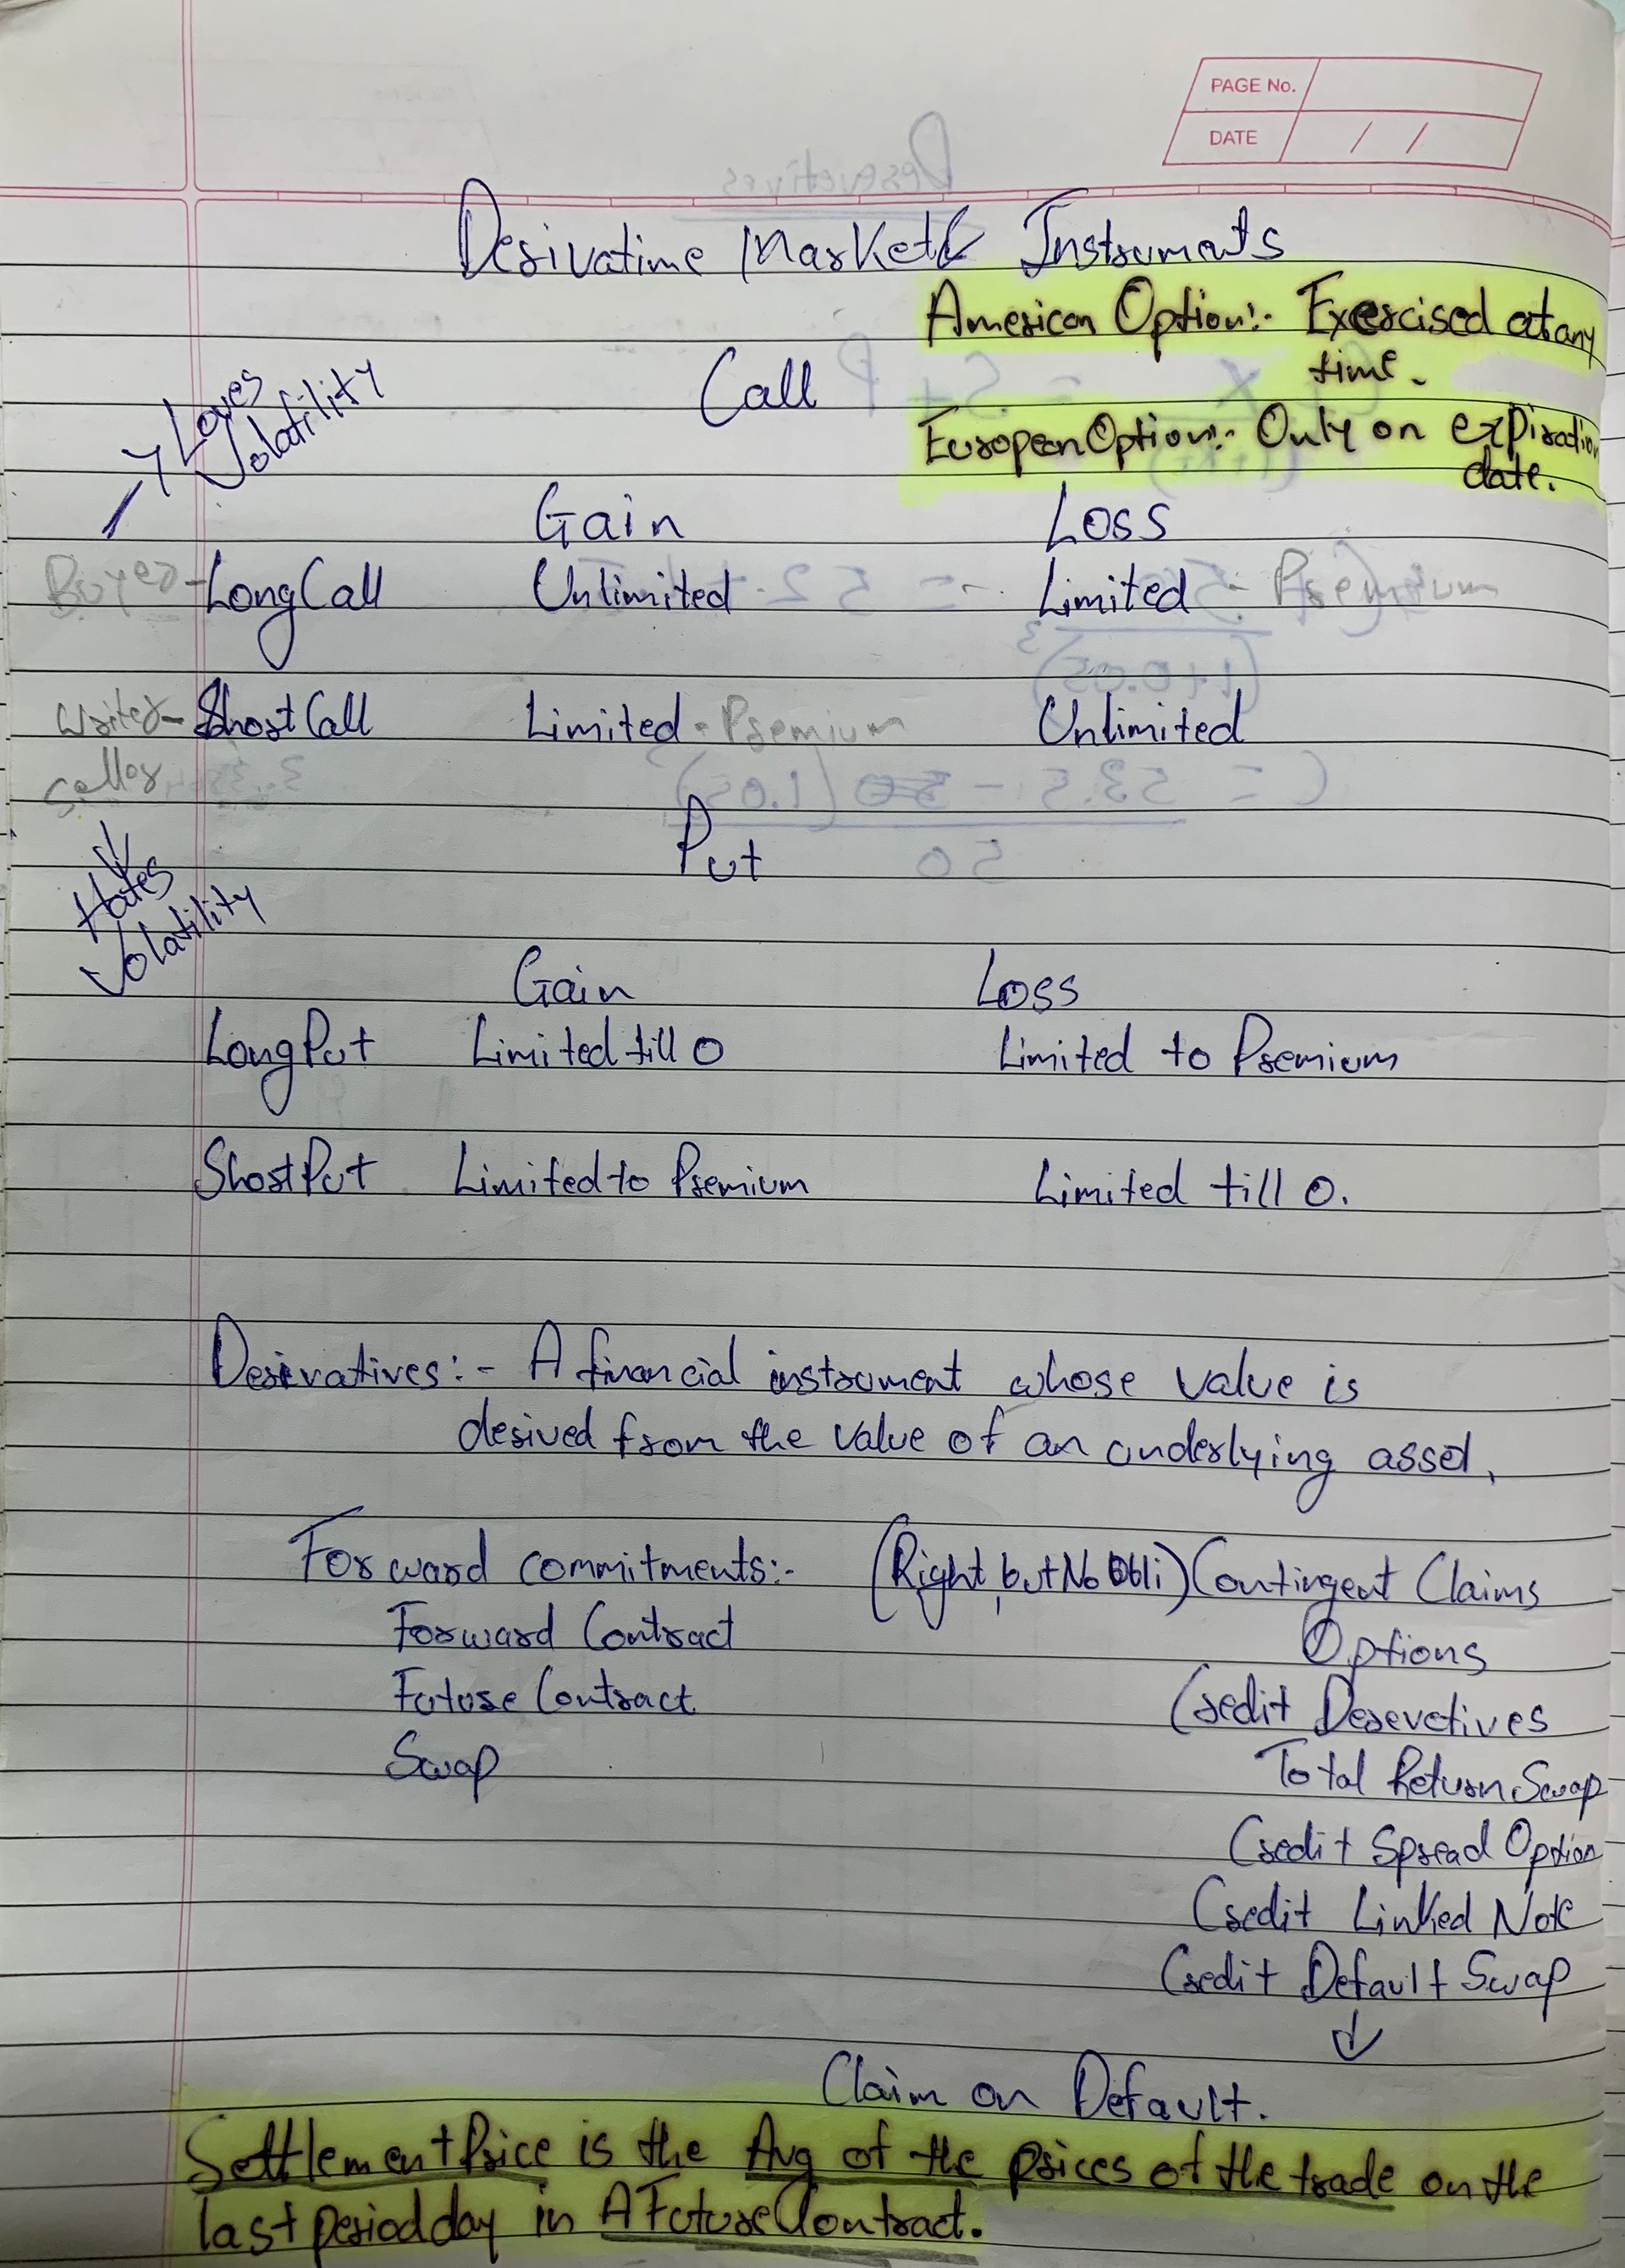 PAGE No.
DATE / /
Derivatime Market & Instruments
American Option:- Exercised at any
time.
Call
European Option:- Only on expiration
date.
Loves
Volatility
Gain Loss
Buyer - Long Call Unlimited Limited - Premium
Writer - Short Call Limited - Premium Unlimited
Seller
Put
Hates
Volatility
Gain Loss
Long Put Limited till 0 Limited to Premium
Short Put Limited to Premium Limited till 0.
Derivatives:- A financial instrument whose value is
derived from the value of an underlying asset.
Forward commitments:- (Right, but No Obli) Contingent Claims
Forward Contract Options
Future Contract Credit Derevetives
Swap Total Return Swap
Credit Spread Option
Credit Linked Note
Credit Default Swap
↓
Claim on Default.
Settlement Price is the Avg of the prices of the trade on the
last period day in A Future Contract.